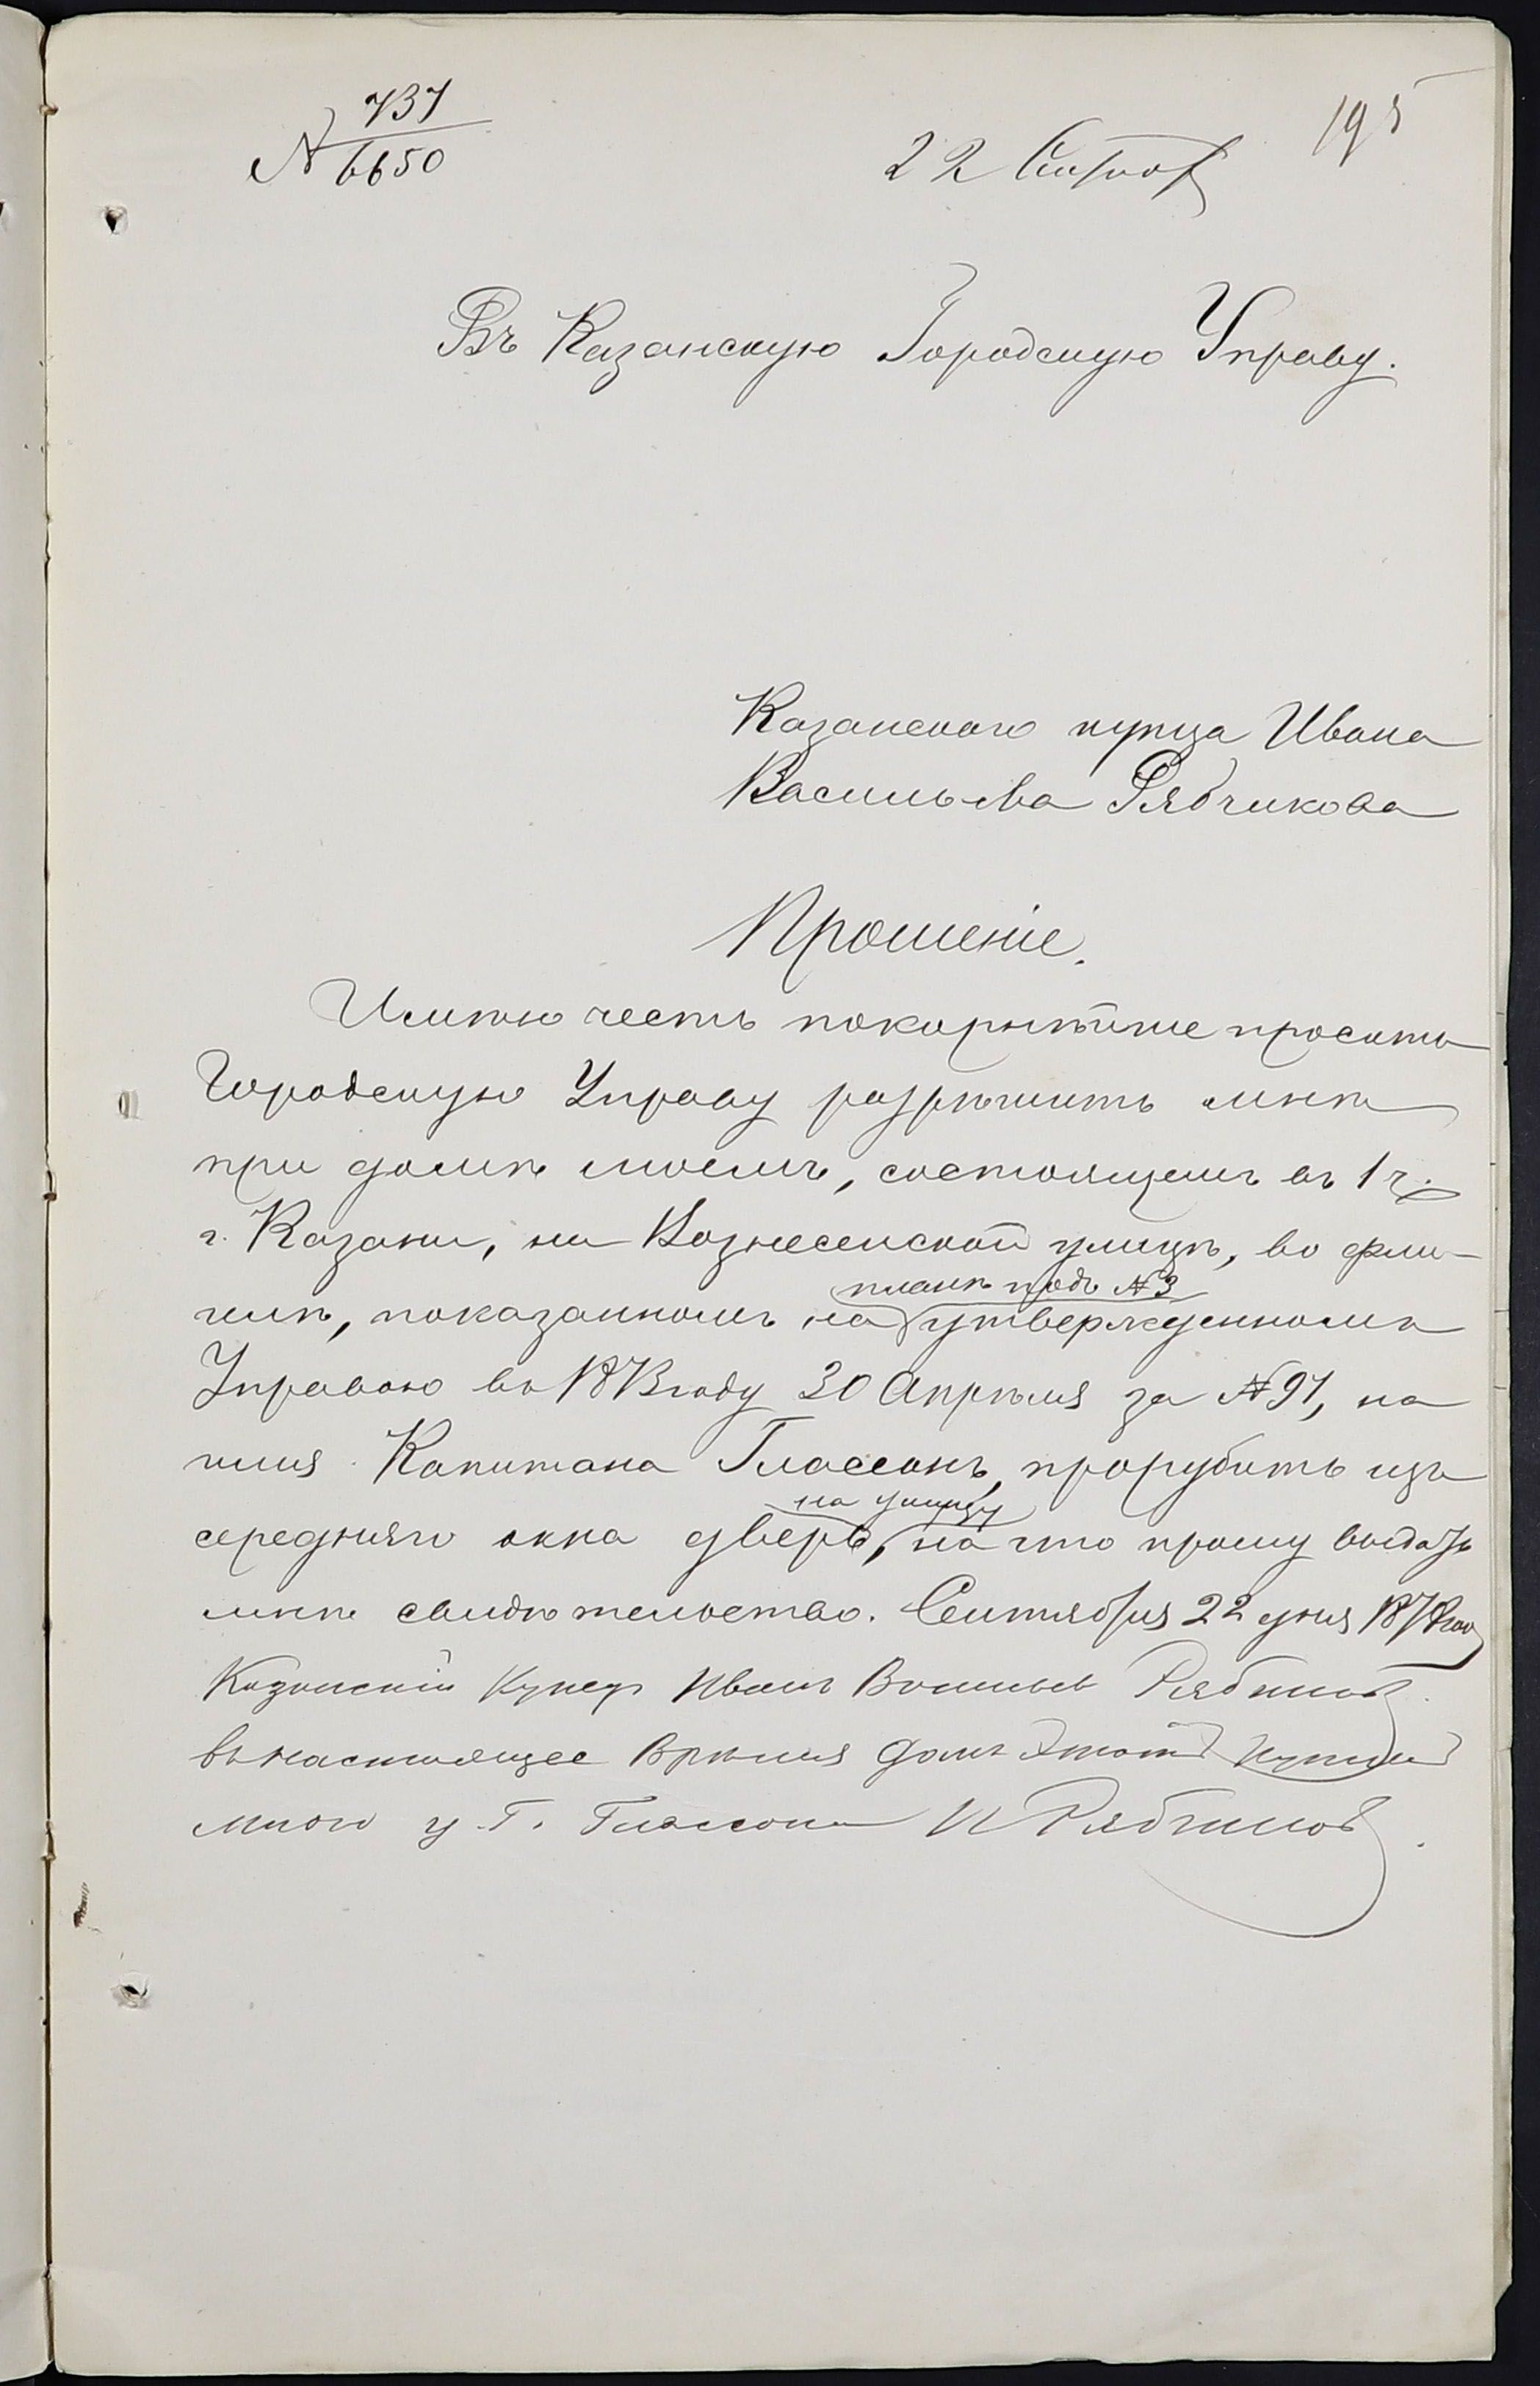 № 737
6650
195
22 Сентяб
Въ Казанскую Городскую Управу.
Казанскаго купца Ивана
Васильева Рябчикова
Прошеніе.
Имѣю честь покорнѣйше просить
Городскую Управу разрѣшить мнѣ
при домѣ моемъ, состоящемъ въ 1 ч.
г. Казани, на Вознесенской улицѣ, во фли-
планѣ подъ № 3
гелѣ, показанномъ на утвержденномъ
Управою въ году 30 Апрѣля за № 97, на
имя Капитана Глассонъ, прорубить изъ
на улицу
середняго окна дверь, на что прошу выдать
мнѣ свидѣтельство. Сентября 22 дня 1878 год
Казанскій Купецъ Иванъ Васильевъ Рябчиковъ.
въ настоящее время домъ Этотъ Купленъ
мною у Г. Глассона И Рябчиковъ.